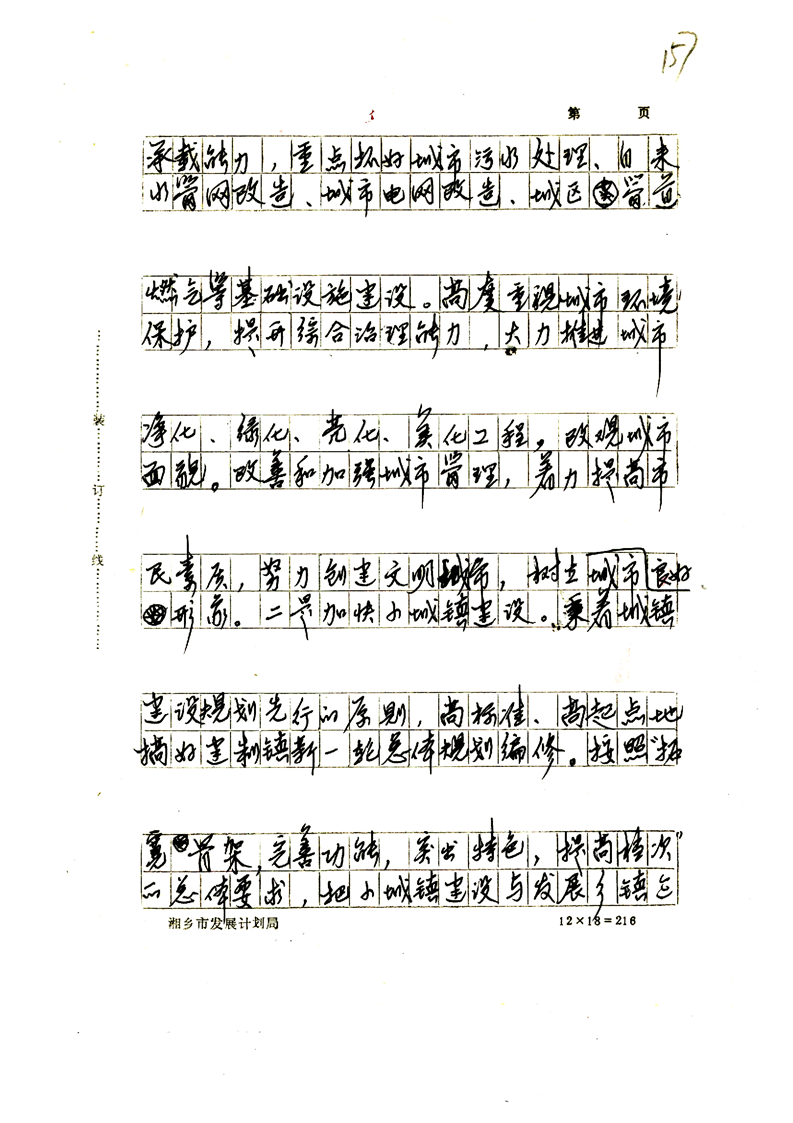 157
第 页
承载能力，重点抓好城市污水处理、自来
水管网改造、城市电网改造、城区管道
燃气等基础设施建设。高度重视城市环境
保护，提升综合治理能力，大力推进城市
净化、绿化、亮化、美化工程，改观城市
面貌。改善和加强城市管理，着力提高市
民素质，努力创建文明城市，树立城市良好
形象。二是加快小城镇建设。秉着城镇
建设规划先行的原则，高标准、高起点地
搞好建制镇新一轮总体规划编修。按照“拓
宽骨架，完善功能，突出特色，提高档次”
的总体要求，把小城镇建设与发展乡镇企
湘乡市发展计划局 12×18=216
装
订
线